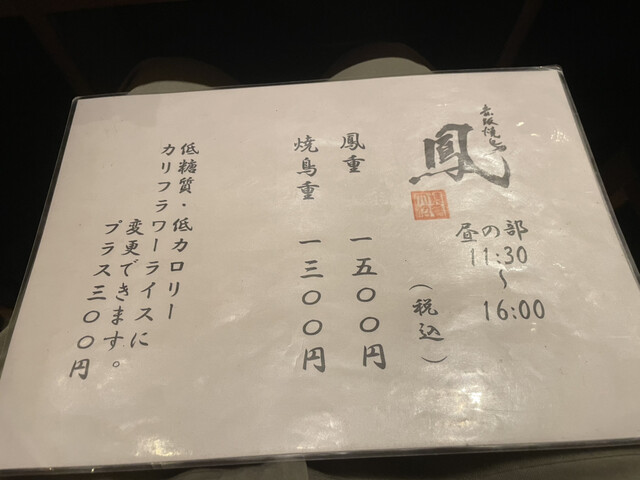 赤坂焼鳥
鳳
昼の部
11:30
~
16:00
(税込)
鳳重 一五〇〇円
焼鳥重 一三〇〇円
低糖質・低カロリー
カリフラワーライスに
変更できます。
プラス三〇〇円